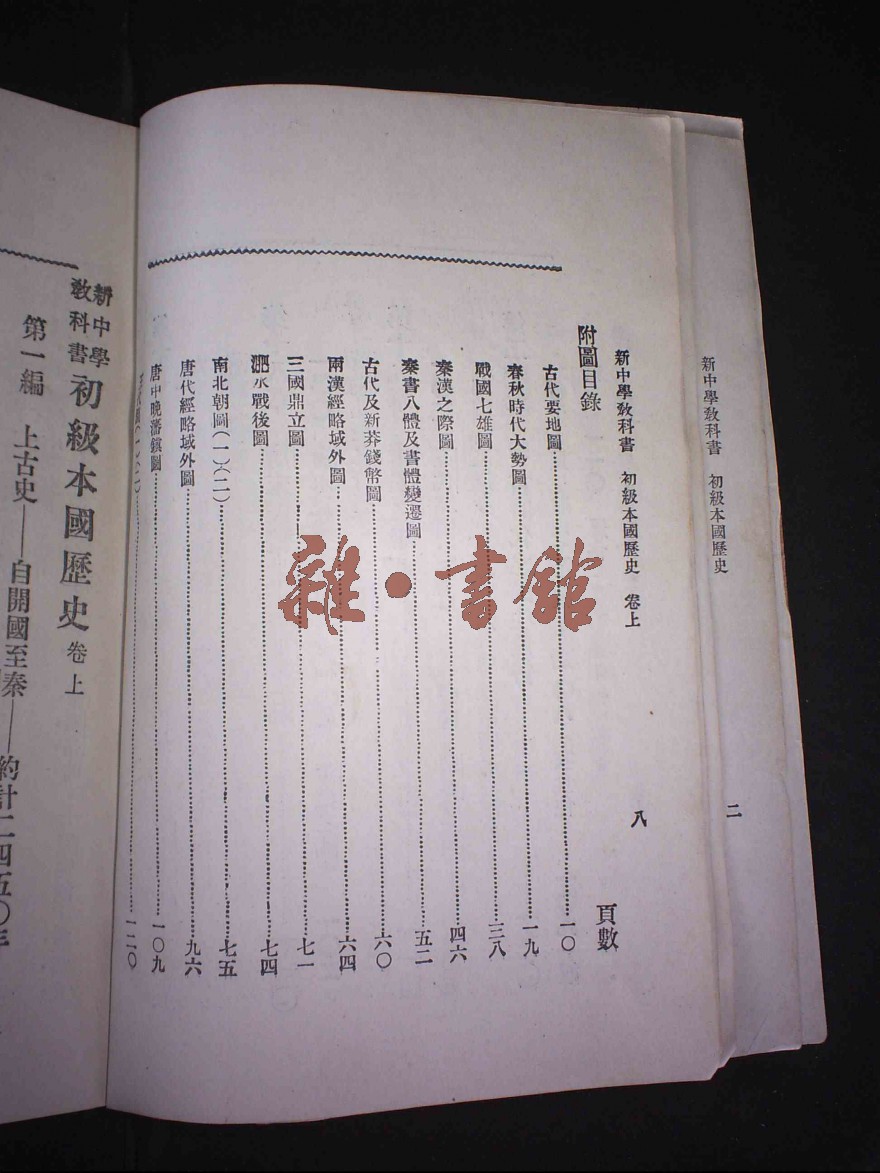 新中學教科書 初級本國歷史
二
新中學教科書 初級本國歷史 卷上
八
附圖目錄 頁數
古代要地圖 一〇
春秋時代大勢圖 一九
戰國七雄圖 三八
秦漢之際圖 四六
秦書八體及書體變遷圖 五二
古代及新莽錢幣圖 六〇
兩漢經略域外圖 六四
三國鼎立圖 七一
淝水戰後圖 七四
南北朝圖(一)(二) 七五
唐代經略域外圖 九六
唐中晚藩鎮圖 一〇九
圖(一)(二) 一二〇
新中學教科書 初級本國歷史 卷上
第一編 上古史——自開國至秦——約計二四五〇年
雜·書館